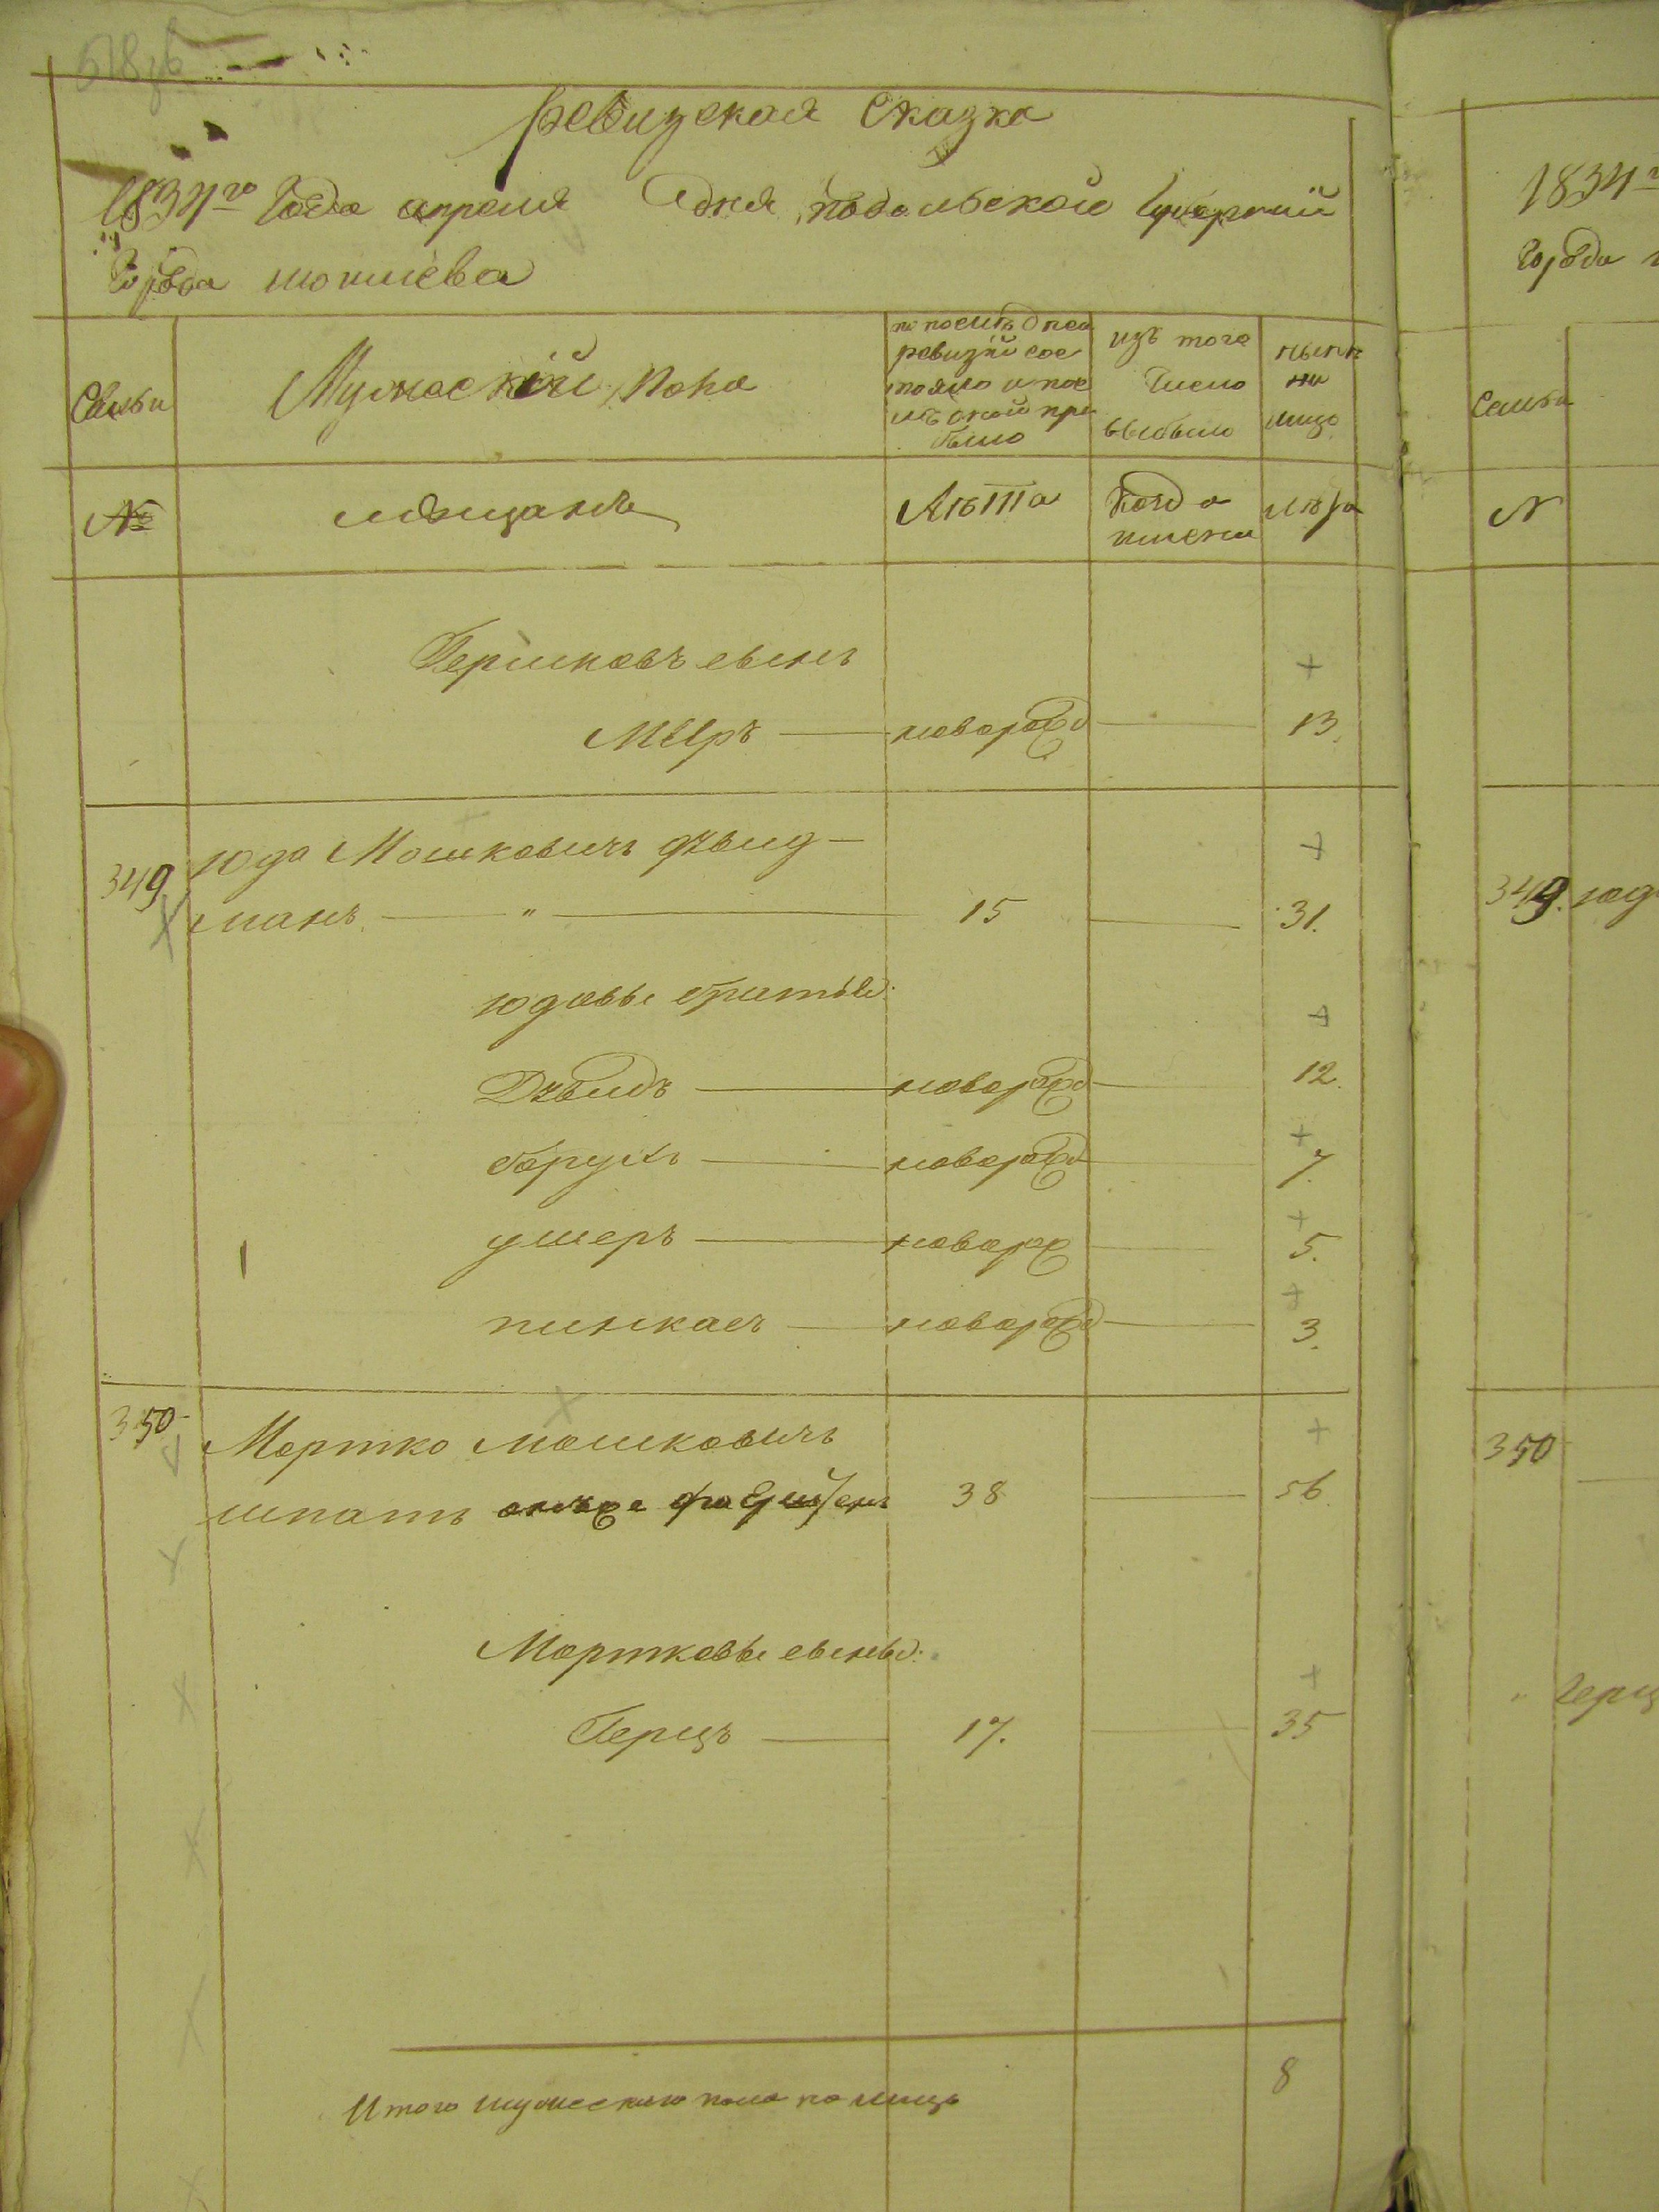 ревизская Сказка
1834го Года апреля дня подольской Губернии
Города могилева
Семьи
Мужеской пола
по последней
ревизии сос
тояло и пос
лъ оной при
было
изъ того
Число
выбыло
нынѣ
на
лицо
Семьи
№
мѣщанѣ
Лѣта
Когда
имено
лѣта
№
Гершковъ сынъ
Мееръ новорожд 13.
349 Юда Мошковичъ
манъ " 15 31.
Юдовы братья:
новорожд 12.
Борухъ новорожд 7.
ушеръ новорж 5.
пинкасъ новорожд 3.
350 Мортко Мошковичъ
шпатъ 38 56.
Мортковы сыновья:
Герцъ 17. 35
Итого мужеского пола на лицо 8
1834
Города
349. Юд
350
" Герц